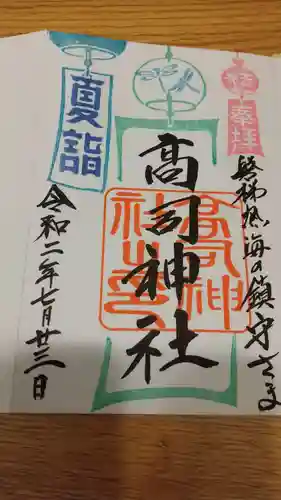 奉拝
磐梯熱海の鎮守さま
高司神社
高司神社之印
夏詣
令和二年七月廿三日